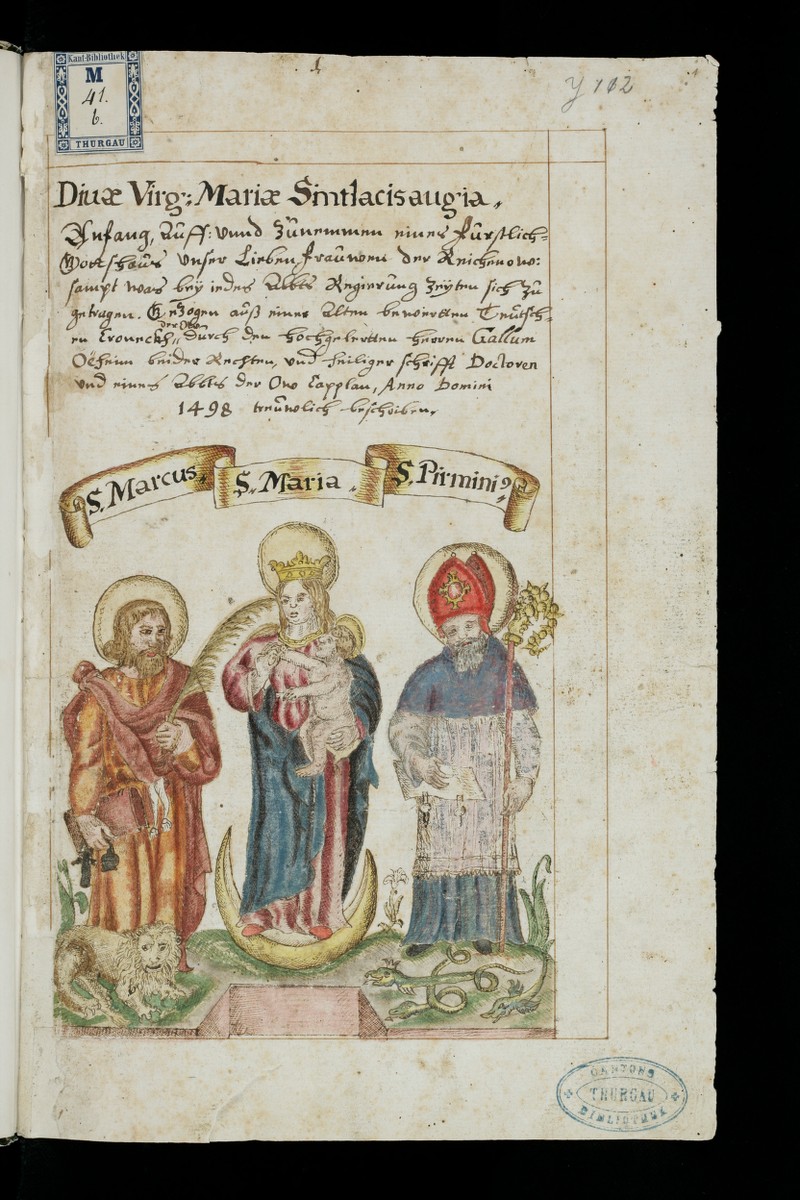 1
y 112
Kant-Bibliothek
M
41.
b.
THURGAU
Diuæ Virg: Mariæ Sintlacis augia.
Anfang, Auff: vnnd Zůnemmen eines Fürstlich=
Gottshauß Vnser Lieben Frauwen der Reichenouw:
sampt was bey iedes Abbts Regierung Zeyten sich Zů
getragen. Gezogen auß einer Alten bewerten Teutsch=
en Croneckh,
durch den hochgelertten herren Gallum
Öeheim beider Rechten, vnd heiliger schrifft Doctoren
vnd eines Abbts der Ow Capplan, Anno Domini
1498 treuwlich beschriben.
S. Marcus.
S. Maria.
S. Pirmini9
CANTONS
THURGAU
BIBLIOTHEK